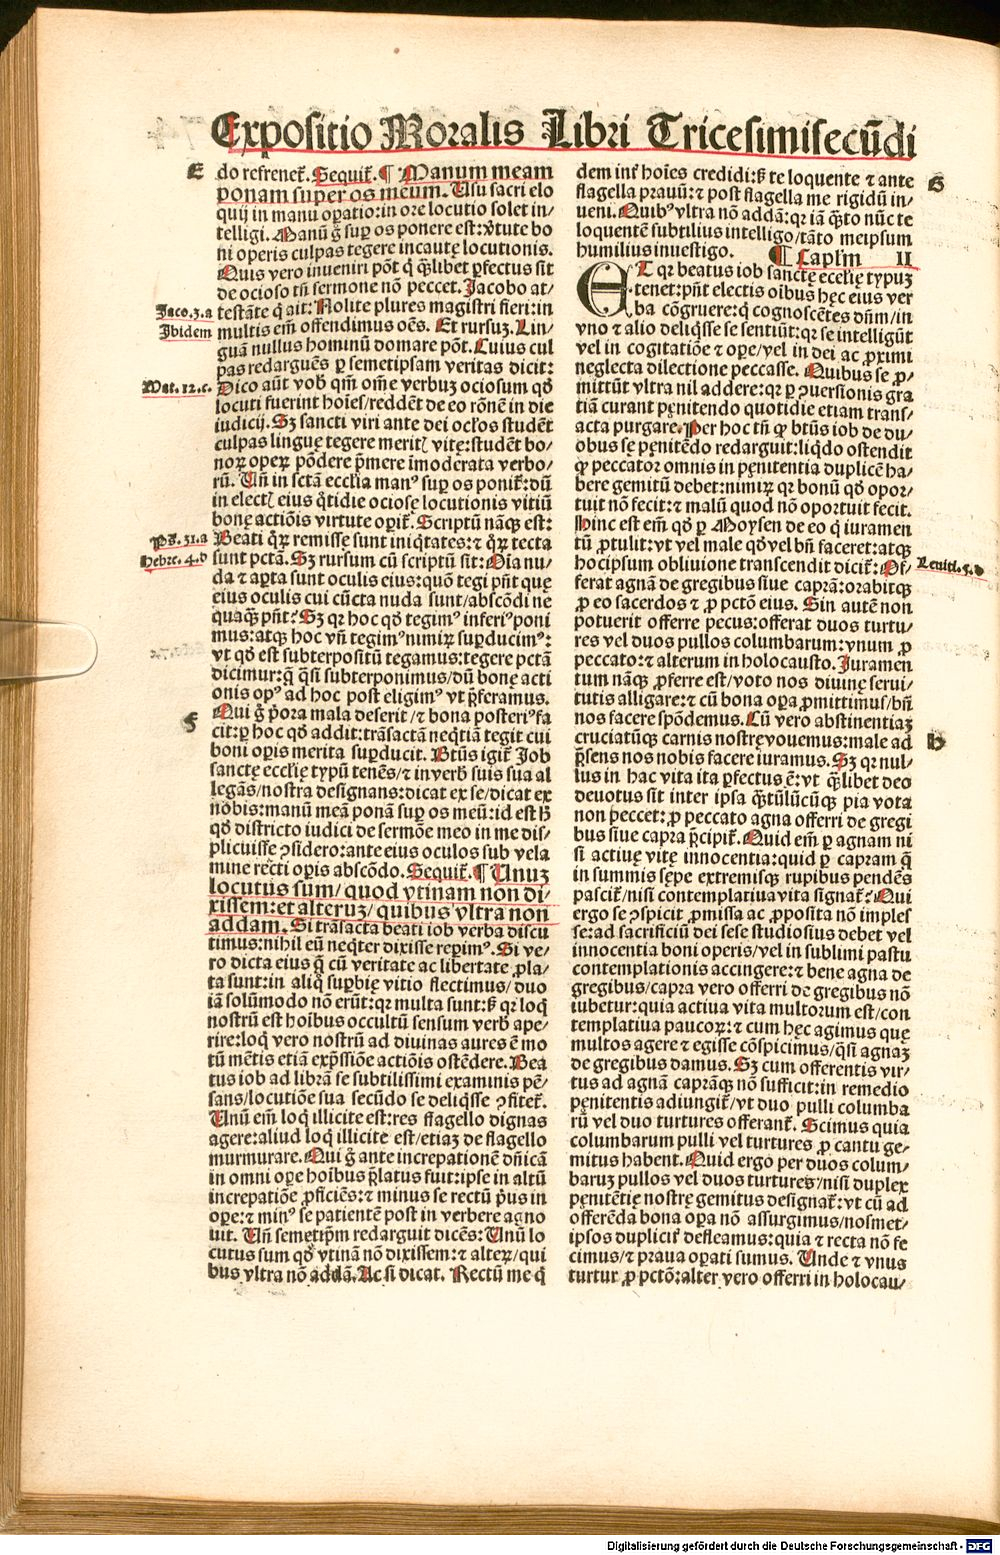 Expositio Moralis Libri Tricesimisecūdi
E
do refrenet᷑. Sequit᷑. ¶ Manum meam
ponam super os meum. Usu sacri elo
quij in manu oꝑatio: in ore locutio solet in/
telligi. Manū g̊ suꝑ os ponere est: v̓tute bo
ni operis culpas tegere incautę locutionis.
Quis vero inueniri pōt q̇ q̄ꝫlibet ꝑfectus sit
de ocioso tn̄ sermone nō peccet. Jacobo at/
Jaco.3.a
testāte q̇ ait: Nolite plures magistri fieri: in
Ibidem
multis em̄ offendimus oēs. Et rursuꝫ. Lin/
guā nullus hominū domare pōt. Cuius cul
pas redarguēs ꝑ semetipsam veritas dicit:
Mat. 12.c.
Dico aūt vob̓ qm̄ om̄e verbuꝫ ociosum qd̓
locuti fuerint hoīes/reddēt de eo rōnē in die
iudicij. Sꝫ sancti viri ante dei ocl̓os studēt
culpas linguę tegere meritꝭ vitę: studēt bo/
noꝝ opeꝝ pōdere p̄mere īmoderata verbo/
rū. Un̄ in sctā eccl̓ia manꝰ suꝑ os ponit᷑: dū
in electꝭ eius q̄tidie ociosę locutionis vitiū
bonę actiōis virtute oꝑit᷑. Scriptū nāqꝫ est:
Ps. 31.a
Beati qͦꝝ remisse sunt iniq̇tates: ⁊ qͦꝝ tecta
Hebre. 4.d
sunt pctā. Sꝫ rursum cū scriptū sit: Oīa nu/
da ⁊ aꝑta sunt oculis eius: quō tegi pn̄t quę
eius oculis cui cūcta nuda sunt/abscōdi ne
quaqꝫ pn̄t? Sꝫ qr hoc qd̓ tegimꝰ inferiꝰ poni
mus: atqꝫ hoc vn̄ tegimꝰ nimiꝝ suꝑducimꝰ:
vt qd̓ est subterpositū tegamus: tegere pctā
dicimur: q̄ q̄si subterponimus/dū bonę acti
onis opꝰ ad hoc post eligimꝰ vt p̄feramus.
F
Qui g̊ pͥora mala deserit/⁊ bona posteriꝰ fa
cit: ꝑ hoc qd̓ addit: trāsactā neq̇tiā tegit cui
boni oꝑis merita suꝑducit. Btūs igit᷑ Job
sanctę eccl̓ię typū tenēs/⁊ in verb̓ suis sua al
legās/nostra designans: dicat ex se/dicat ex
nobis: manū meā ponā suꝑ os meū: id est h̓
qd̓ districto iudici de sermōe meo in me dis/
plicuisse ꝯsidero: ante eius oculos sub vela
mine recti oꝑis abscōdo. Sequit᷑. ¶ Unuꝫ
locutus sum/quod vtinam non di/
xissem: et alteruꝫ/quibus vltra non
addam. Si trāsacta beati iob verba discu
timus: nihil eū neq̇ter dixisse reꝑimꝰ. Si ve/
ro dicta eius q̄ cū veritate ac libertate ꝓla/
ta sunt: in aliq̇ suꝑbię vitio flectimus/duo
iā solūmodo nō erūt: qr multa sunt: sꝫ qr loq̇
nostrū est hoībus occultū sensum verb̓ ape/
rire: loq̇ vero nostrū ad diuinas aures ē mo
tū mētis etiā exp̄ssiōe actiōis ostēdere. Bea
tus iob ad librā se subtilissimi examinis pē/
sans/locutiōe sua secūdo se deliq̇sse ꝯfitet᷑.
Unū em̄ loq̇ illicite est: res flagello dignas
agere: aliud loq̇ illicite est/etiaꝫ de flagello
murmurare. Qui g̊ ante increpationē dn̄icā
in omni oꝑe hoībus p̄latus fuit: ipse in altū
increpatiōe ꝓficiēs: ⁊ minus se rectū pͥus in
oꝑe: ⁊ minꝰ se patientē post in verbere agno
uit. Un̄ semetip̄m redarguit dicēs: Unū lo
cutus sum qd̓ vtinā nō dixissem: ⁊ alteꝝ/qui
bus vltra nō addā. Ac si dicat. Rectū me q̇
dem int̓ hoīes credidi: sꝫ te loquente ⁊ ante
G
flagella prauū: ⁊ post flagella me rigidū in/
ueni. Quibꝰ vltra nō addā: qr iā q̄ꝫto nūc te
loquentē subtilius intelligo/tāto meipsum
humilius inuestigo. ¶ Capl̓m II
ET qr beatus iob sanctę eccl̓ię typuꝫ
tenet: pn̄t electis oībus hęc eius ver
ba cōgruere: q̇ cognoscētes dn̄m/in
vno ⁊ alio deliq̇sse se sentiūt: qr se intelligūt
vel in cogitatiōe ⁊ oꝑe/vel in dei ac ꝓximi
neglecta dilectione peccasse. Quibus se ꝓ/
mittūt vltra nil addere: qr ꝑ ꝯuersionis gra
tiā curant pęnitendo quotidie etiam trans/
acta purgare. Per hoc tn̄ ꝙ btūs iob de du/
obus se pęnitēdo redarguit: liq̇do ostendit
ꝙ peccator omnis in pęnitentia duplicē ha/
bere gemitū debet: nimiꝝ qr bonū qd̓ opor/
tuit nō fecit: ⁊ malū quod nō oportuit fecit.
Hinc est em̄ qd̓ ꝑ Moysen de eo q̇ iuramen
tū ꝓtulit: vt vel male qd̓ vel bn̄ faceret: atqꝫ
hocipsum obliuione transcendit dicit᷑: Of/
Leuitl̓. 5.b
ferat agnā de gregibus siue capraꝫ: orabitqꝫ
ꝓ eo sacerdos ⁊ ꝓ pctō eius. Sin autē non
potuerit offerre pecus: offerat duos turtu/
res vel duos pullos columbarum: vnum ꝓ
peccato: ⁊ alterum in holocausto. Juramen
tum nāqꝫ ꝓferre est/voto nos diuinę serui/
tutis alligare: ⁊ cū bona oꝑa ꝓmittimus/bn̄
nos facere spōdemus. Cū vero abstinentiaꝫ
cruciatūqꝫ carnis nostrę vouemus: male ad
H
p̄sens nos nobis facere iuramus. Sꝫ qr nul/
lus in hac vita ita ꝑfectus ē: vt q̄ꝫlibet deo
deuotus sit inter ipsa q̄ꝫtūlūcūqꝫ pia vota
non peccet: ꝓ peccato agna offerri de gregi
bus siue capra p̄cipit᷑. Quid em̄ ꝑ agnam ni
si actiuę vitę innocentia: quid ꝑ capram q̄
in summis sępe extremisqꝫ rupibus pendēs
pascit᷑/nisi contemplatiua vita signat᷑? Qui
ergo se ꝯspicit ꝓmissa ac ꝓposita nō imples
se: ad sacrificiū dei sese studiosius debet vel
innocentia boni operis/vel in sublimi pastu
contemplationis accingere: ⁊ bene agna de
gregibus/capra vero offerri de gregibus nō
iubetur: quia actiua vita multorum est/con
templatiua paucoꝝ: ⁊ cum hęc agimus quę
multos agere ⁊ egisse cōspicimus/q̄si agnaꝫ
de gregibus damus. Sꝫ cum offerentis vir/
tus ad agnā caprāqꝫ nō sufficit: in remedio
pęnitentis adiungit᷑/vt duo pulli columba
rū vel duo turtures offerant᷑. Scimus quia
columbarum pulli vel turtures ꝓ cantu ge/
mitus habent. Quid ergo per duos colum/
baruꝫ pullos vel duos turtures/nisi duplex
pęnitētię nostrę gemitus designat᷑: vt cū ad
offerēda bona oꝑa nō assurgimus/nosmet/
ipsos dupliciꝰ defleamus: quia ⁊ recta nō fe
cimus/⁊ praua oꝑati sumus. Unde ⁊ vnus
turtur ꝓ pctō: alter vero offerri in holocau/
Digitalisierung gefördert durch die Deutsche Forschungsgemeinschaft - DFG